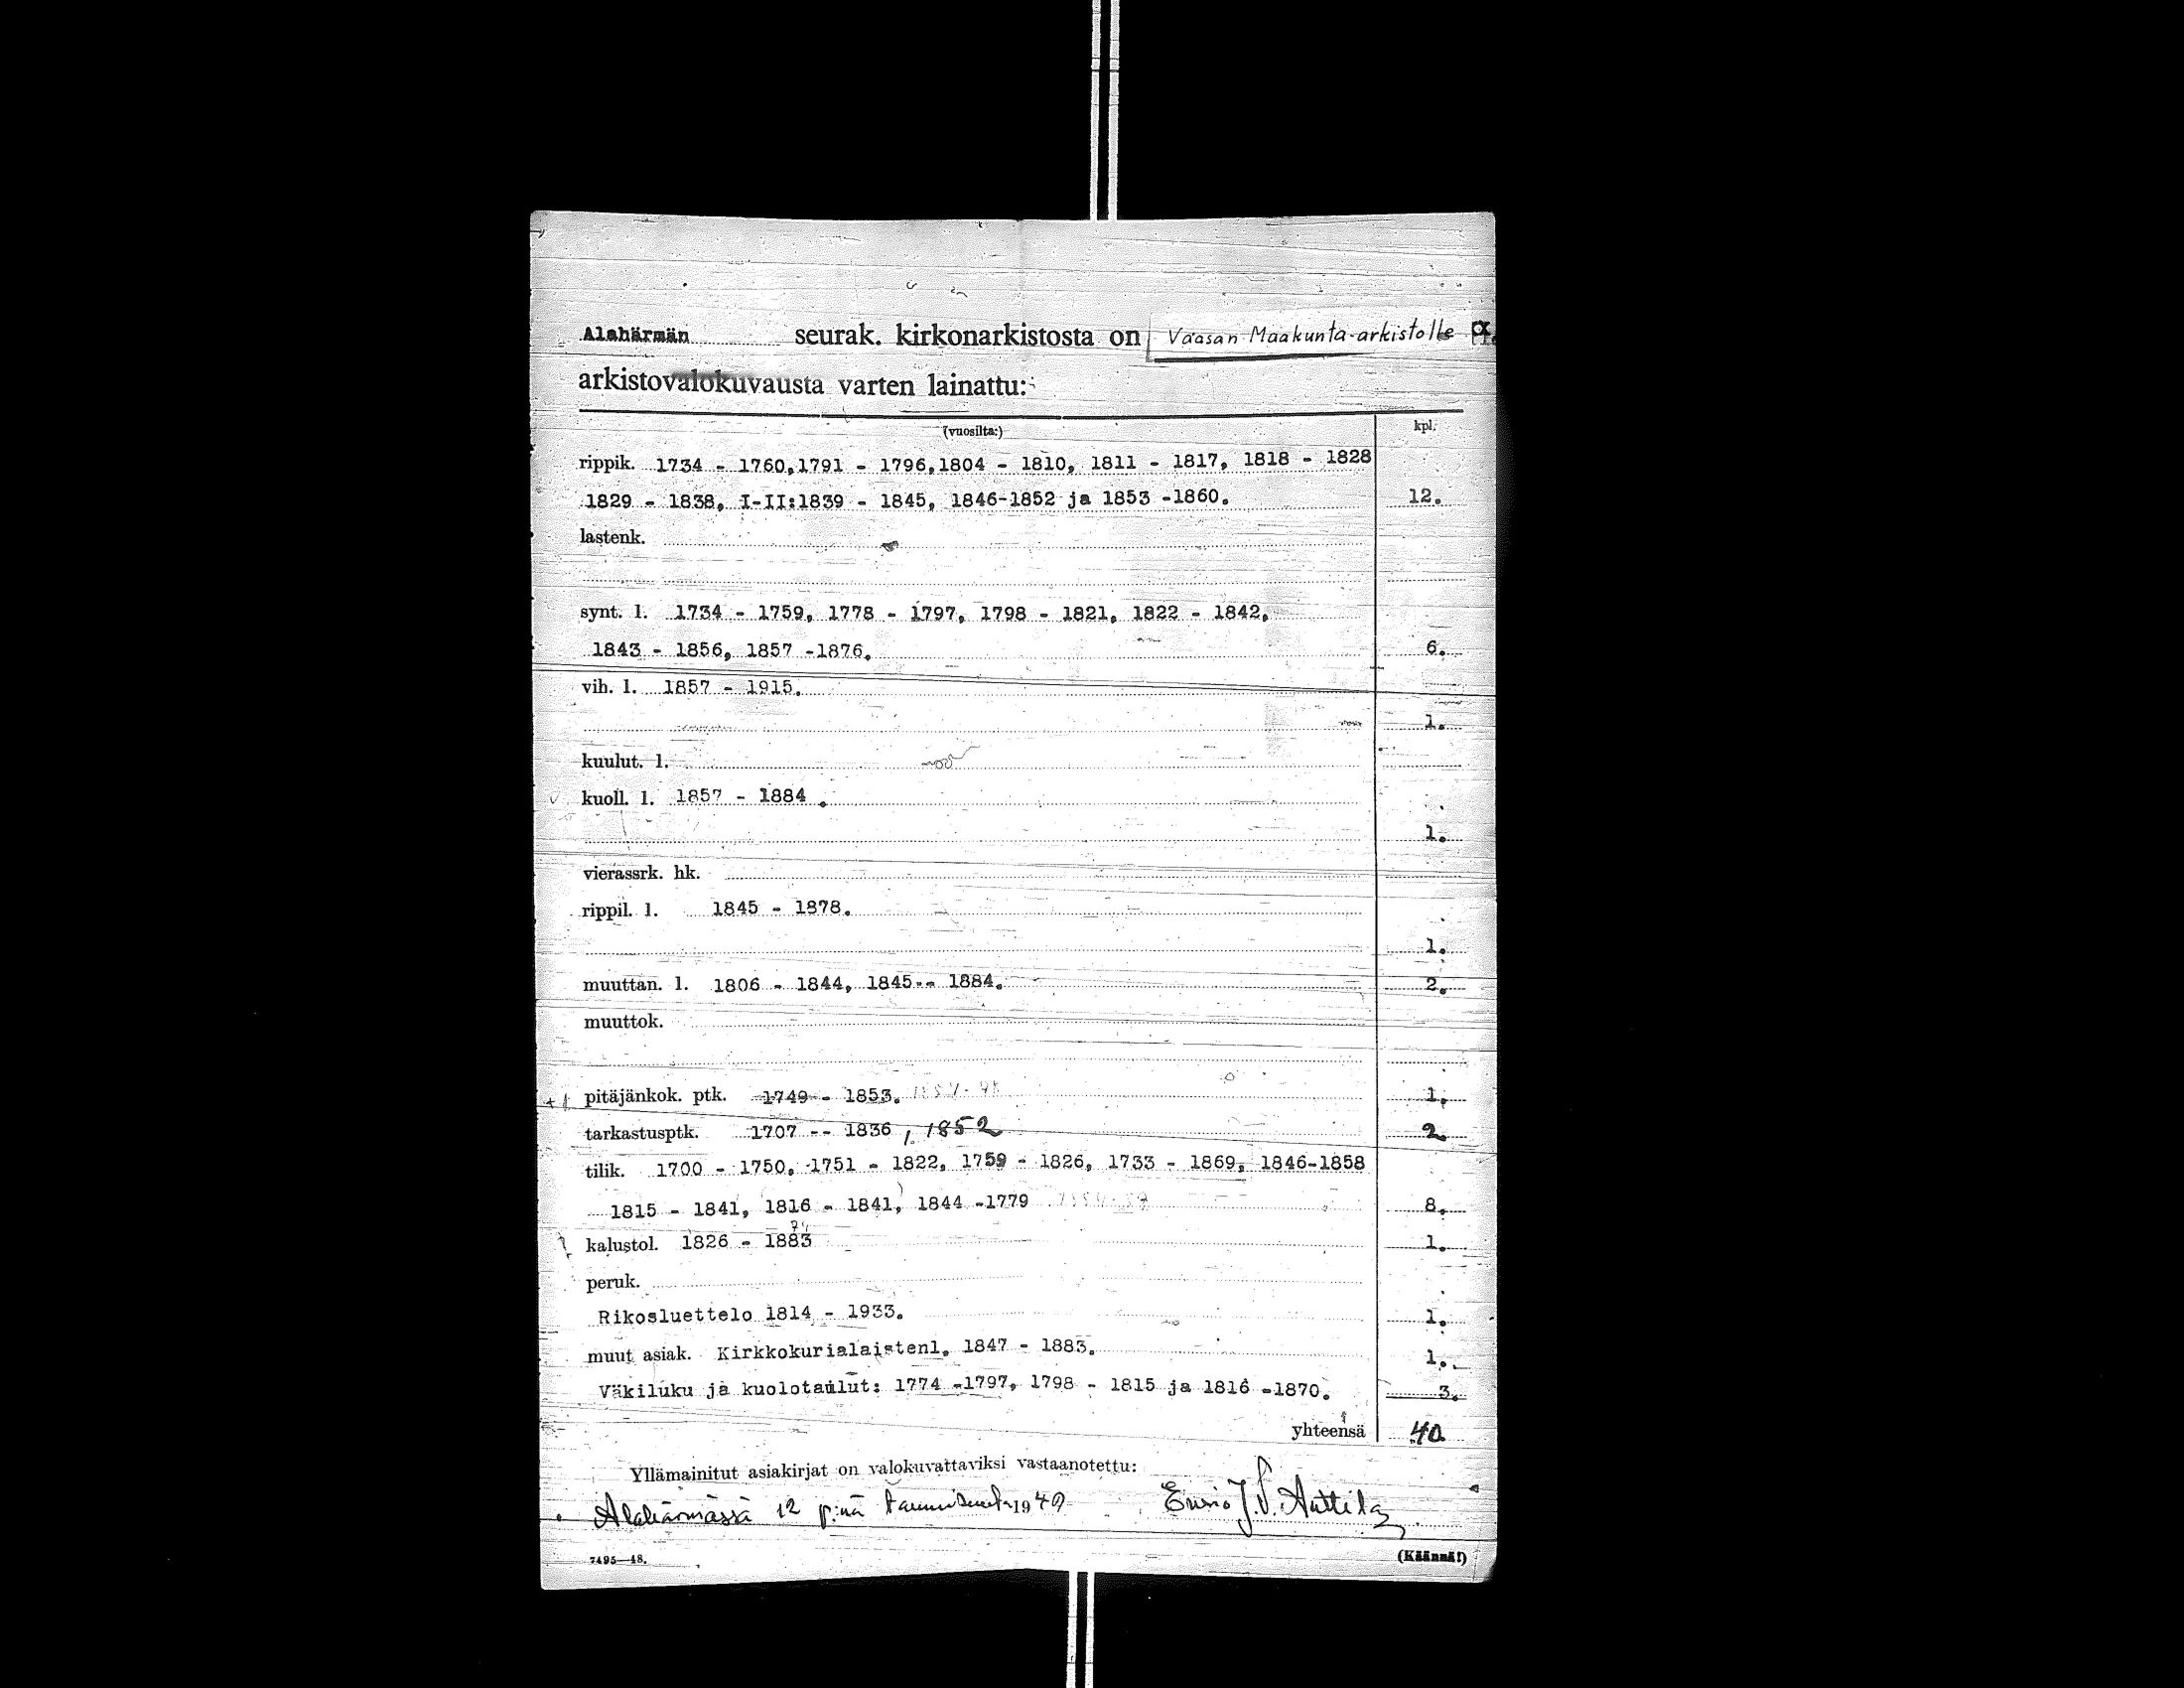 Alahärmän seurak. kirkonarkistosta on Vaasan Maakunta-arkistolle
arkistovalokuvausta varten lainattu:
(vuosilta:) kpl.
rippik. 1734 - 1760, 1791 - 1796, 1804 - 1810, 1811 - 1817, 1818 - 1828
1829 - 1838, I-II:1839 - 1845, 1846-1852 ja 1853 -1860. 12.
lastenk.
synt. l. 1734 - 1759, 1778 - 1797, 1798 - 1821, 1822 - 1842,
1843 - 1856, 1857 -1876. 6.
vih. l. 1857 - 1915.
1.
kuulut. l.
kuoll. l. 1857 - 1884 .
1.
vierassrk. hk.
rippil. l. 1845 - 1878.
1.
muuttan. l. 1806 - 1844, 1845-- 1884. 2.
muuttok.
+1 pitäjänkok. ptk. 1749 - 1853. 1.
tarkastusptk. 1707 -- 1836 , 1852 2
tilik. 1700 - 1750, 1751 - 1822, 1759 - 1826, 1733 - 1869, 1846-1858
1815 - 1841, 1816 - 1841, 1844 -1779 8.
kalustol. 1826 - 1883 1.
peruk.
Rikosluettelo 1814 - 1933. 1.
muut asiak. Kirkkokurialaistenl. 1847 - 1883. 1.
Väkiluku ja kuolotaulut: 1774 -1797, 1798 - 1815 ja 1816 -1870. 3.
yhteensä 40
Yllämainitut asiakirjat on valokuvattaviksi vastaanotettu:
Alahärmässä 12 p:nä tammikuuta 1949 J. V. Anttila
7495—48. (Käännä!)